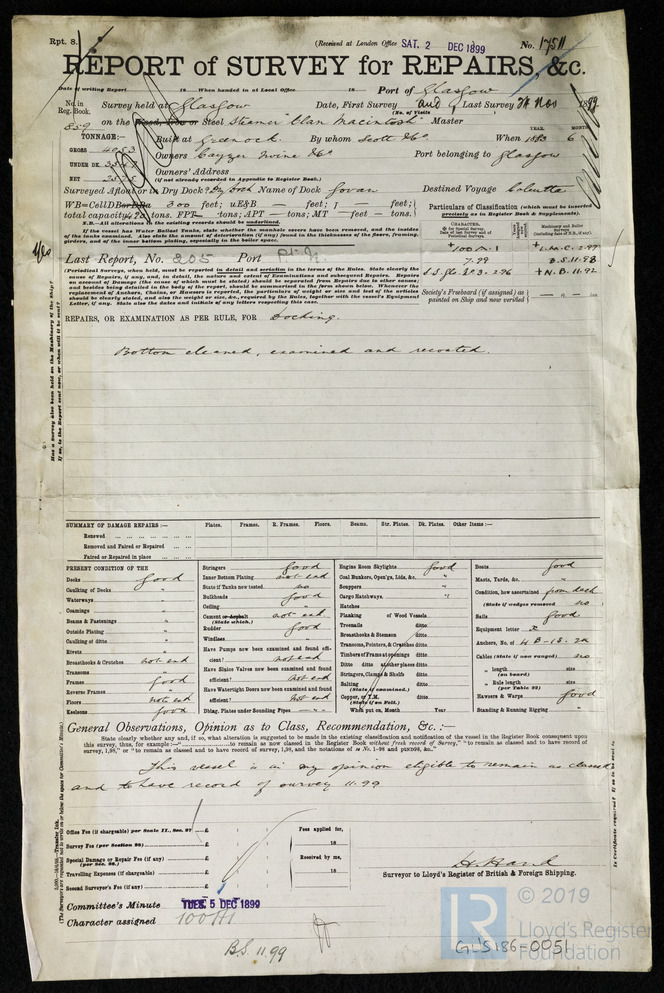 Rpt. 8.
(Received at London Office SAT. 2 DEC 1899
No. 17511
REPORT of SURVEY for REPAIRS, &c.
Date of writing Report 18 When handed in at Local Office 18 Port of Glasgow
No. in Reg. Book. Survey held at Glasgow Date, First Survey and Last Survey 24 Nov 1899
(No. of Visits
859 on the Wood, Iron or Steel Steamer "Clan Macintosh" Master
TONNAGE:— Built at Greenock By whom Scott & Co When 1883 6
YEAR. MONTH
GROSS
Owners Cayzer Irvine & Co Port belonging to Glasgow
UNDER DK.
Owners' Address
(if not already recorded in Appendix to Register Book.)
NET
Surveyed Afloat or in Dry Dock? Dry Dock Name of Dock Govan Destined Voyage Calcutta
WB=CellDBorDBa 300 feet; uE&B — feet; f — feet;
total capacity 420 tons. FPT — tons; APT — tons; MT — feet — tons.
Particulars of Classification (which must be inserted precisely as in Register Book & Supplements).
N.B.—All alterations in the existing records should be underlined.
If the vessel has Water Ballast Tanks, state whether the manhole covers have been removed, and the insides of the tanks examined. Also state the amount of deterioration (if any) found in the thicknesses of the floors, framing, girders, and of the inner bottom plating, especially in the boiler space.
Last Report, No. 205 Port
+100 A.1 + L.M.C. 2.97
7.99 B.S. 11.98
S.S. Gls. No 3. 2.96 + N.B. 11.92
(Periodical Surveys, when held, must be reported in detail and seriatim in the terms of the Rules. State clearly the cause of Repairs, if any, and, in detail, the nature and extent of Examinations and Repairs. Repairs on account of Damage (the cause of which must be stated) should be separated from Repairs due to other causes; and besides being detailed in the body of the report, should be summarised in the form shown below. Whenever the replacement of Anchors, Chains, or Hawsers is reported, the particulars of weight or size and test of the articles should be clearly stated, and also the weight or size, &c., required by the Rules, together with the vessel's Equipment Letter, if any. State also the dates and initials of any letters respecting this case.
Society's Freeboard (if assigned) as painted on Ship and now verified
REPAIRS, OR EXAMINATION AS PER RULE, FOR Docking.
Bottom cleaned, examined and recoated.
SUMMARY OF DAMAGE REPAIRS:— Plates. Frames. R. Frames. Floors. Beams. Str. Plates. Dk. Plates. Other Items:—
Renewed
Removed and Faired or Repaired
Faired or Repaired in place
PRESENT CONDITION OF THE
Decks good
Caulking of Decks "
Waterways "
Coamings "
Beams & Fastenings "
Outside Plating "
Caulking of ditto "
Rivets "
Breasthooks & Crutches not exd
Transoms "
Frames good
Reverse Frames "
Floors not exd
Keelsons good
Stringers good
Inner Bottom Plating not exd
State if Tanks now tested no
Bulkheads good
Ceiling "
Cement or Asphalt (State which.) not exd
Rudder good
Windlass "
Have Pumps now been examined and found efficient? not exd
Have Sluice Valves now been examined and found efficient? not exd
Have Watertight Doors now been examined and found efficient? not exd
Dblng. Plates under Sounding Pipes
Engine Room Skylights good
Coal Bunkers, Open'gs, Lids, &c. "
Scuppers "
Cargo Hatchways "
Hatches
Planking of Wood Vessels
Treenails ditto
Breasthooks & Stemson ditto
Transoms, Pointers, & Crutches ditto
Timbers of Frame at openings ditto
Ditto ditto at other places ditto
Stringers, Clamps & Shelfs ditto
Salting ditto
(State if examined.)
Copper, or Y.M. ditto
(State if on Felt.)
When put on, Month Year
Boats good
Masts, Yards, &c. "
Condition, how ascertained from deck
(State if wedges removed) no
Sails good
Equipment letter
Anchors, No. of 4 B - 1S. 2K
Cables (State if now ranged) no
" length (on board) size
" Rule length (per Table 22) size
Hawsers & Warps good
Standing & Running Rigging "
General Observations, Opinion as to Class, Recommendation, &c. :—
State clearly whether and, if so, what alteration is suggested to be made in the existing classification and notification of the vessel in the Register Book consequent upon this survey, thus, for example:—
This vessel is in my opinion eligible to remain as classed
and to have record of survey 11.99
Office Fee (if chargeable) per Scale II., Sec. 27 £
Survey Fee (per Section 28) £
Special Damage or Repair Fee (if any) (per Sec. 28.) £
Travelling Expenses (if chargeable) £
Second Surveyor's Fee (if any) £
Fees applied for, 18
Received by me, 18
Surveyor to Lloyd's Register of British & Foreign Shipping.
Committee's Minute TUES. 5 DEC 1899
Character assigned 100A1
B.S. 11.99
LR © 2019
Lloyd's Register
Foundation
GLS186-0051